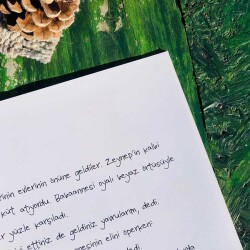 evlerinin önüne geldiler. Zeynep'in kalbi
küt atıyordu. Babaannesi oyalı beyaz örtüsüyle
yüzle karşıladı.
ettiniz de geldiniz yavrularım, dedi.
elini öperken